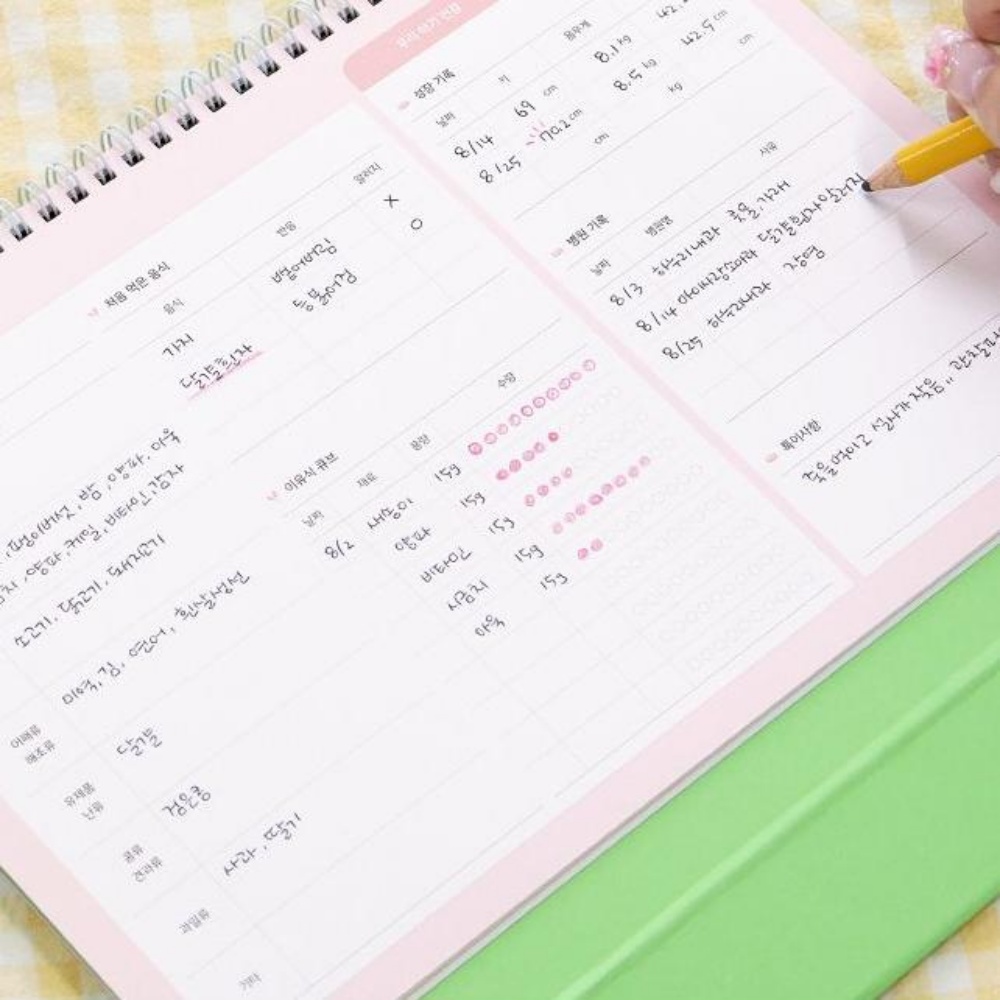 처음 먹은 음식
음식 반응 알러지
가지 별에버임 X
달걀흰자 등 붉어짐 O
, 팽이버섯, 밤, 양파, 아욱
, 양파, 케일, 비타민, 감자
소고기, 닭고기, 돼지고기
어패류 해조류 미역, 김, 연어, 흰살생선
유제품 난류 달걀
콩류 견과류 검은콩
과일류 사과, 딸기
기타
이유식 큐브
날짜 재료 용량 수량
8/2 새송이 15g
양파 15g
비타민 15g
시금치 15g
아욱 15g
성장 기록
날짜 키 몸무게
8/14 69 cm 8.1 kg 42. cm
8/25 70.2 cm 8.5 kg 42.5 cm
cm kg cm
병원 기록
날짜 병원명 사유
8/3 하누리내과 콧물, 가래
8/14 아이사랑소아과 달걀흰자알러지
8/25 하누리내과 장염
특이사항
죽을먹이고 설사가 잦음,, 관찰